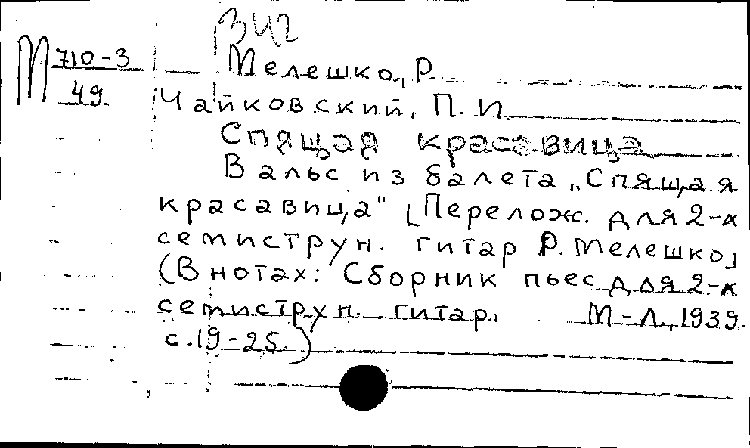 ВИ2
М 710-3
49
Мелешко, Р.
Чайковский, П. И.
Спящая красавица
Вальс из балета „Спящая
красавица" [Перелож. для 2-х
семиструн. гитар Р. Мелешко]
(В нотах: Сборник пьес для 2-х
семиструн. гитар. М-Л, 1939.
с. 19-25.)